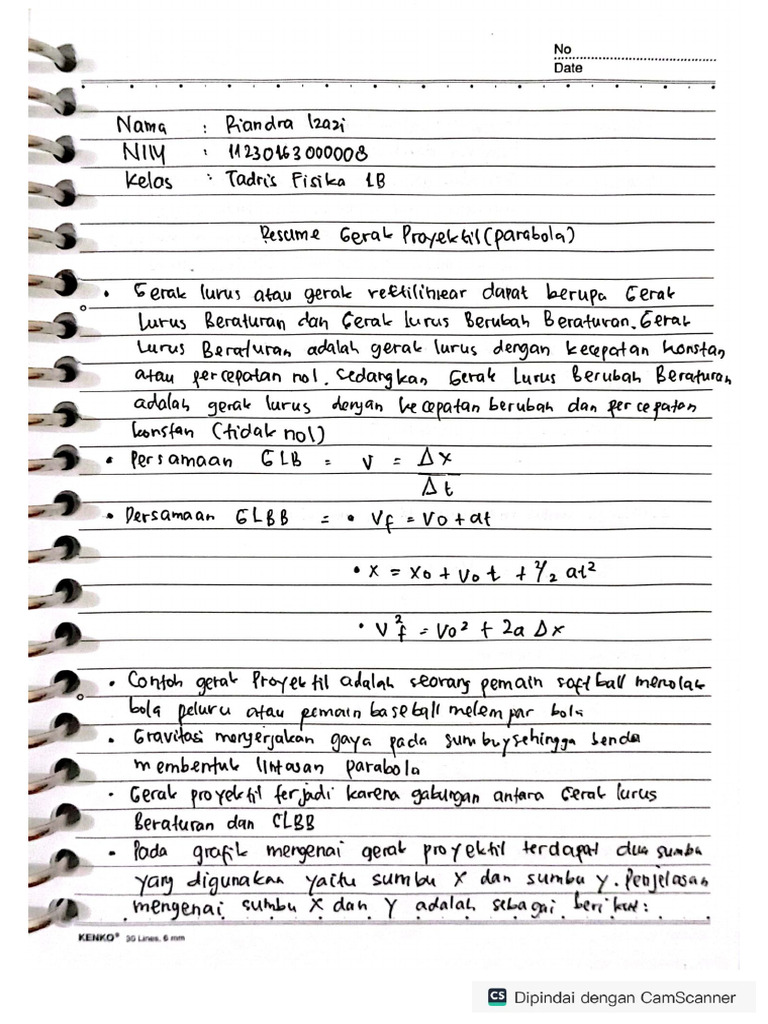 No
Date
Nama : Riandra Izazi
NIM : 11230163000008
Kelas : Tadris Fisika 1B
Resume Gerak Proyektil (parabola)
• Gerak lurus atau gerak rektilinear dapat berupa Gerak
Lurus Beraturan dan Gerak lurus Berubah Beraturan. Gerak
Lurus Beraturan adalah gerak lurus dengan kecepatan konstan
atau percepatan nol. Sedangkan Gerak Lurus Berubah Beraturan
adalah gerak lurus dengan kecepatan berubah dan percepatan
konstan (tidak nol)
• Persamaan GLB = v = Δx
Δt
• Persamaan GLBB = • Vf = Vo + at
• x = xo + vo t + 1/2 at²
• Vf² = Vo² + 2a Δx
• Contoh gerak Proyektil adalah seorang pemain softball menolak
bola peluru atau pemain baseball melempar bola
• Gravitasi mengerjakan gaya pada sumbu y sehingga benda
membentuk lintasan parabola
• Gerak proyektil terjadi karena gabungan antara Gerak lurus
Beraturan dan GLBB
• Pada grafik mengenai gerak proyektil terdapat dua sumbu
yang digunakan yaitu sumbu X dan sumbu Y. Penjelasan
mengenai sumbu X dan Y adalah sebagai berikut:
KENKO® 30 Lines, 6 mm
CS Dipindai dengan CamScanner